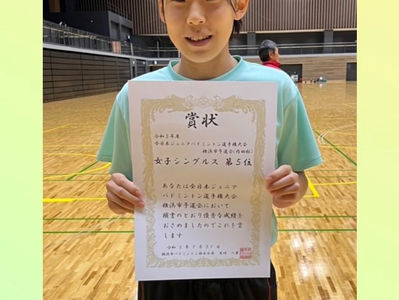 賞状
令和5年度
全日本ジュニアバドミントン選手権大会
横浜市予選会
女子シングルス 第5位
あなたは全日本ジュニア
バドミントン選手権大会
横浜市予選会において
頭書のとおり優秀な成績を
おさめましたのでこれを賞
します